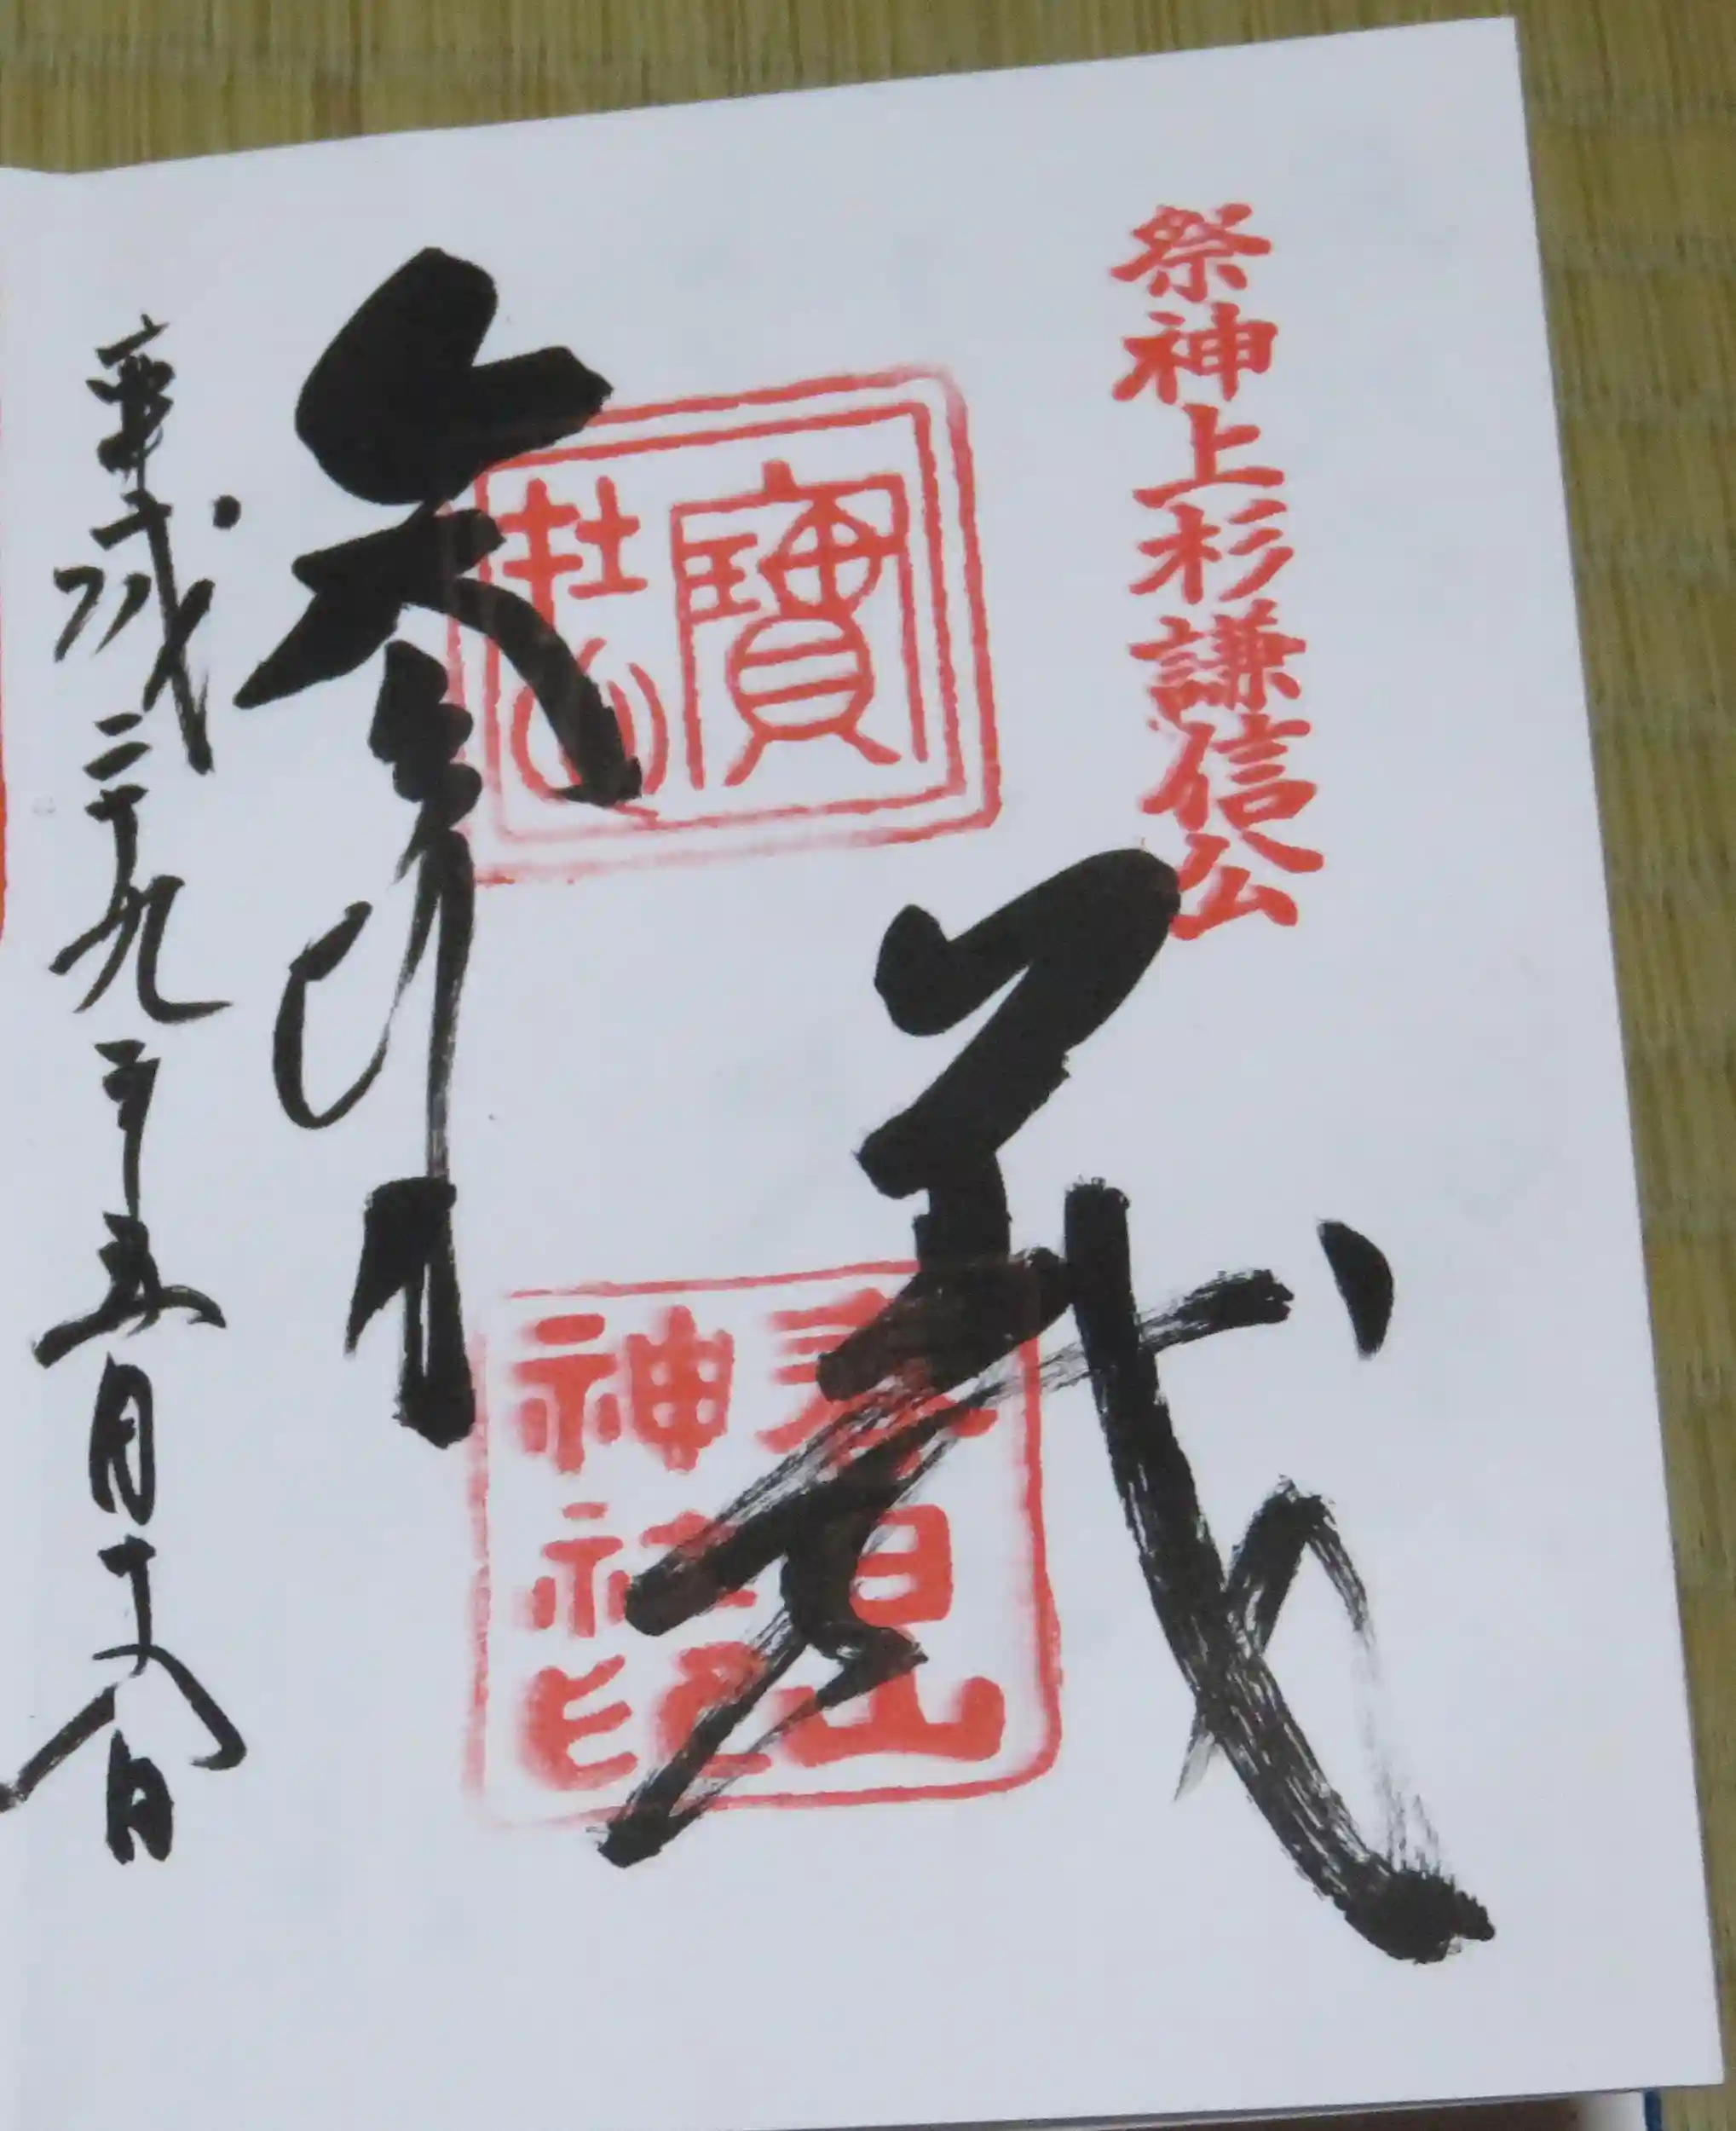 祭神上杉謙信公
義
春日山
神社印
寶
参拝
平成二十九年五月十八日